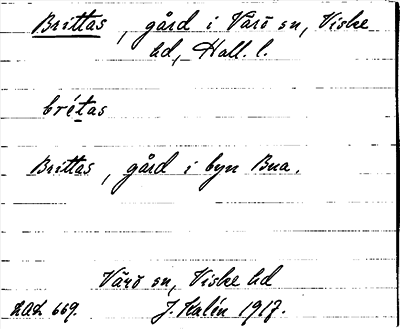 Brittas, gård i Värö sn, Viske
hd, Hall. l.
brétas
Brittas, gård i byn Bua.
Värö sn, Viske hd
J. Kalén 1917.
669.